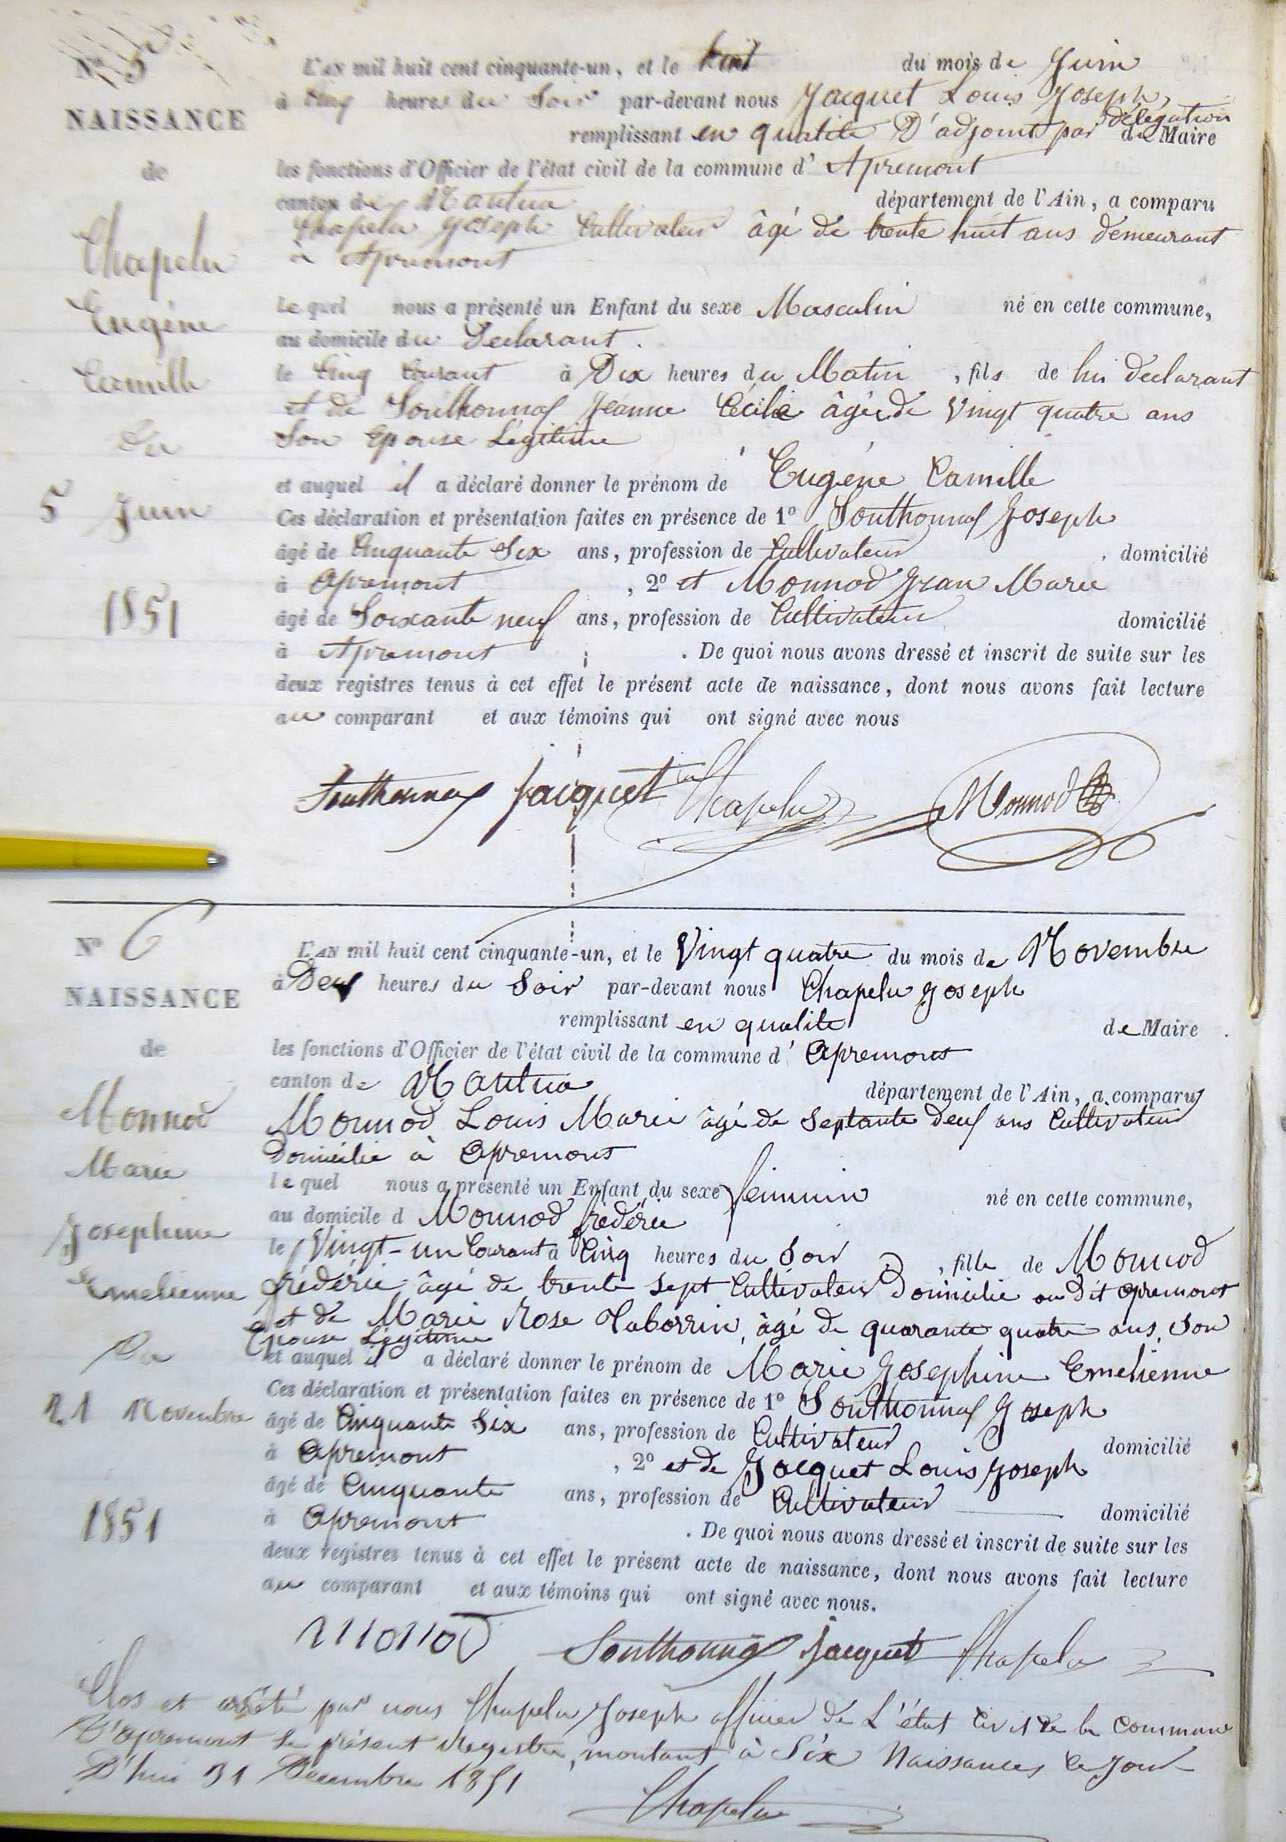 N° 5
NAISSANCE
de
Chapelu
Eugéne
Camille
Du
5 Juin
1851
L'AN mil huit cent cinquante-un, et le huit du mois de Juin
à Cinq heures du Soir par-devant nous Jacquet Louis Joseph,
remplissant en qualité D'adjoint par délégation de Maire
les fonctions d'Officier de l'état civil de la commune d' Apremont
canton de Nantua département de l'Ain, a comparu
Chapelu Joseph Cultivateur âgé de trente huit ans demeurant
a Apremont
Le quel nous a présenté un Enfant du sexe Masculin né en cette commune,
au domicile du Declarant.
le Cinq Courant à Dix heures du Matin, fils de lui declarant
et de Southonnax Jeanne Cécile âgée de Vingt quatre ans
Son Epouse Légitime
et auquel il a déclaré donner le prénom de Eugéne Camille
Ces déclaration et présentation faites en présence de 1° Southonnax Joseph
âgé de Cinquante Six ans, profession de Cultivateur, domicilié
à Apremont, 2° et Monnod Jean Marie
âgé de Soixante neuf ans, profession de Cultivateur domicilié
à Apremont. De quoi nous avons dressé et inscrit de suite sur les
deux registres tenus à cet effet le présent acte de naissance, dont nous avons fait lecture
au comparant et aux témoins qui ont signé avec nous
Southonnax Jacquet Chapelu Monnod
N° 6
NAISSANCE
de
Monnod
Marie
Josephine
Emelienne
Du
21 Novembre
1851
L'AN mil huit cent cinquante-un, et le Vingt quatre du mois de Novembre
à Deux heures du Soir par-devant nous Chapelu Joseph
remplissant en qualité de Maire
les fonctions d'Officier de l'état civil de la commune d' Apremont
canton de Nantua département de l'Ain, a comparu
Monnod Louis Marie âgé de Septante deux ans Cultivateur
Domicilié à Apremont
le quel nous a présenté un Enfant du sexe féminin né en cette commune,
au domicile d Monnod frédéric
le Vingt-un Courant à Cinq heures du Soir, fille de Monnod
frédéric âgé de trente sept Cultivateur Domicilié au Dit Apremont
et de Marie Rose Taborrin, âgé de quarante quatre ans, Son
Epouse Légitime
et auquel il a déclaré donner le prénom de Marie Josephine Emelienne
Ces déclaration et présentation faites en présence de 1° Southonnax Joseph
âgé de Cinquante Six ans, profession de Cultivateur domicilié
à Apremont, 2° et de Jacquet Louis Joseph
âgé de Cinquante ans, profession de Cultivateur domicilié
à Apremont. De quoi nous avons dressé et inscrit de suite sur les
deux registres tenus à cet effet le présent acte de naissance, dont nous avons fait lecture
au comparant et aux témoins qui ont signé avec nous.
Monnod Southonnax Jacquet Chapelu
Clos et arrêté par nous Chapelu Joseph officier de L'état Civil de la Commune
D'Apremont le présent Registre, montant à Six Naissances ce Jour
D'hui 31 Decembre 1851
Chapelu